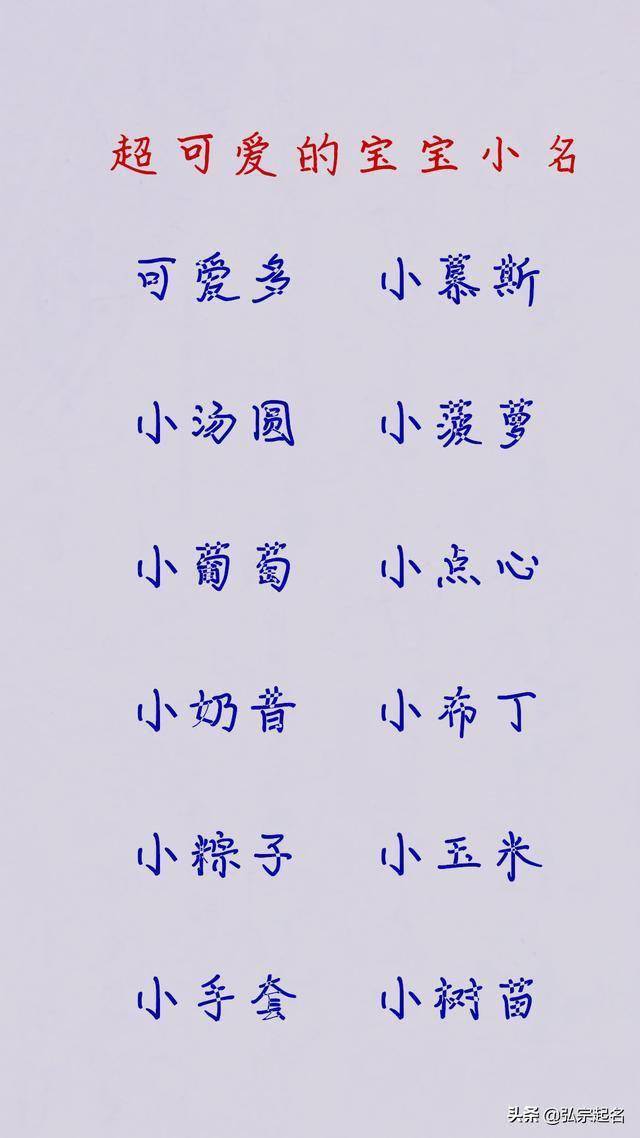 超可爱的宝宝小名
可爱多 小慕斯
小汤圆 小菠萝
小葡萄 小点心
小奶昔 小布丁
小粽子 小玉米
小手套 小树苗
头条 @弘宗起名